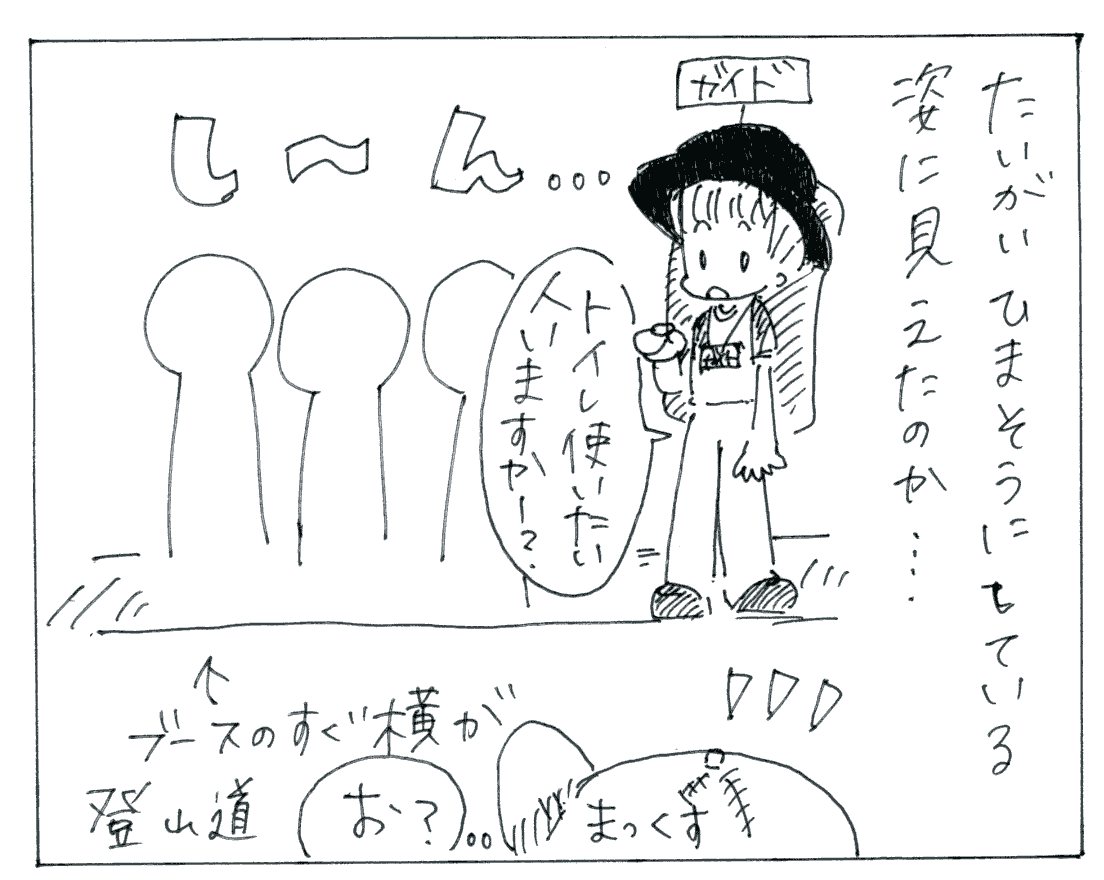 たいがい ひまそうにしている
姿に見えたのか……
ガイド
し〜ん...
トイレ使いたい
人いますかー?
↑
ブースのすぐ横が
登山道
お?
まっくす